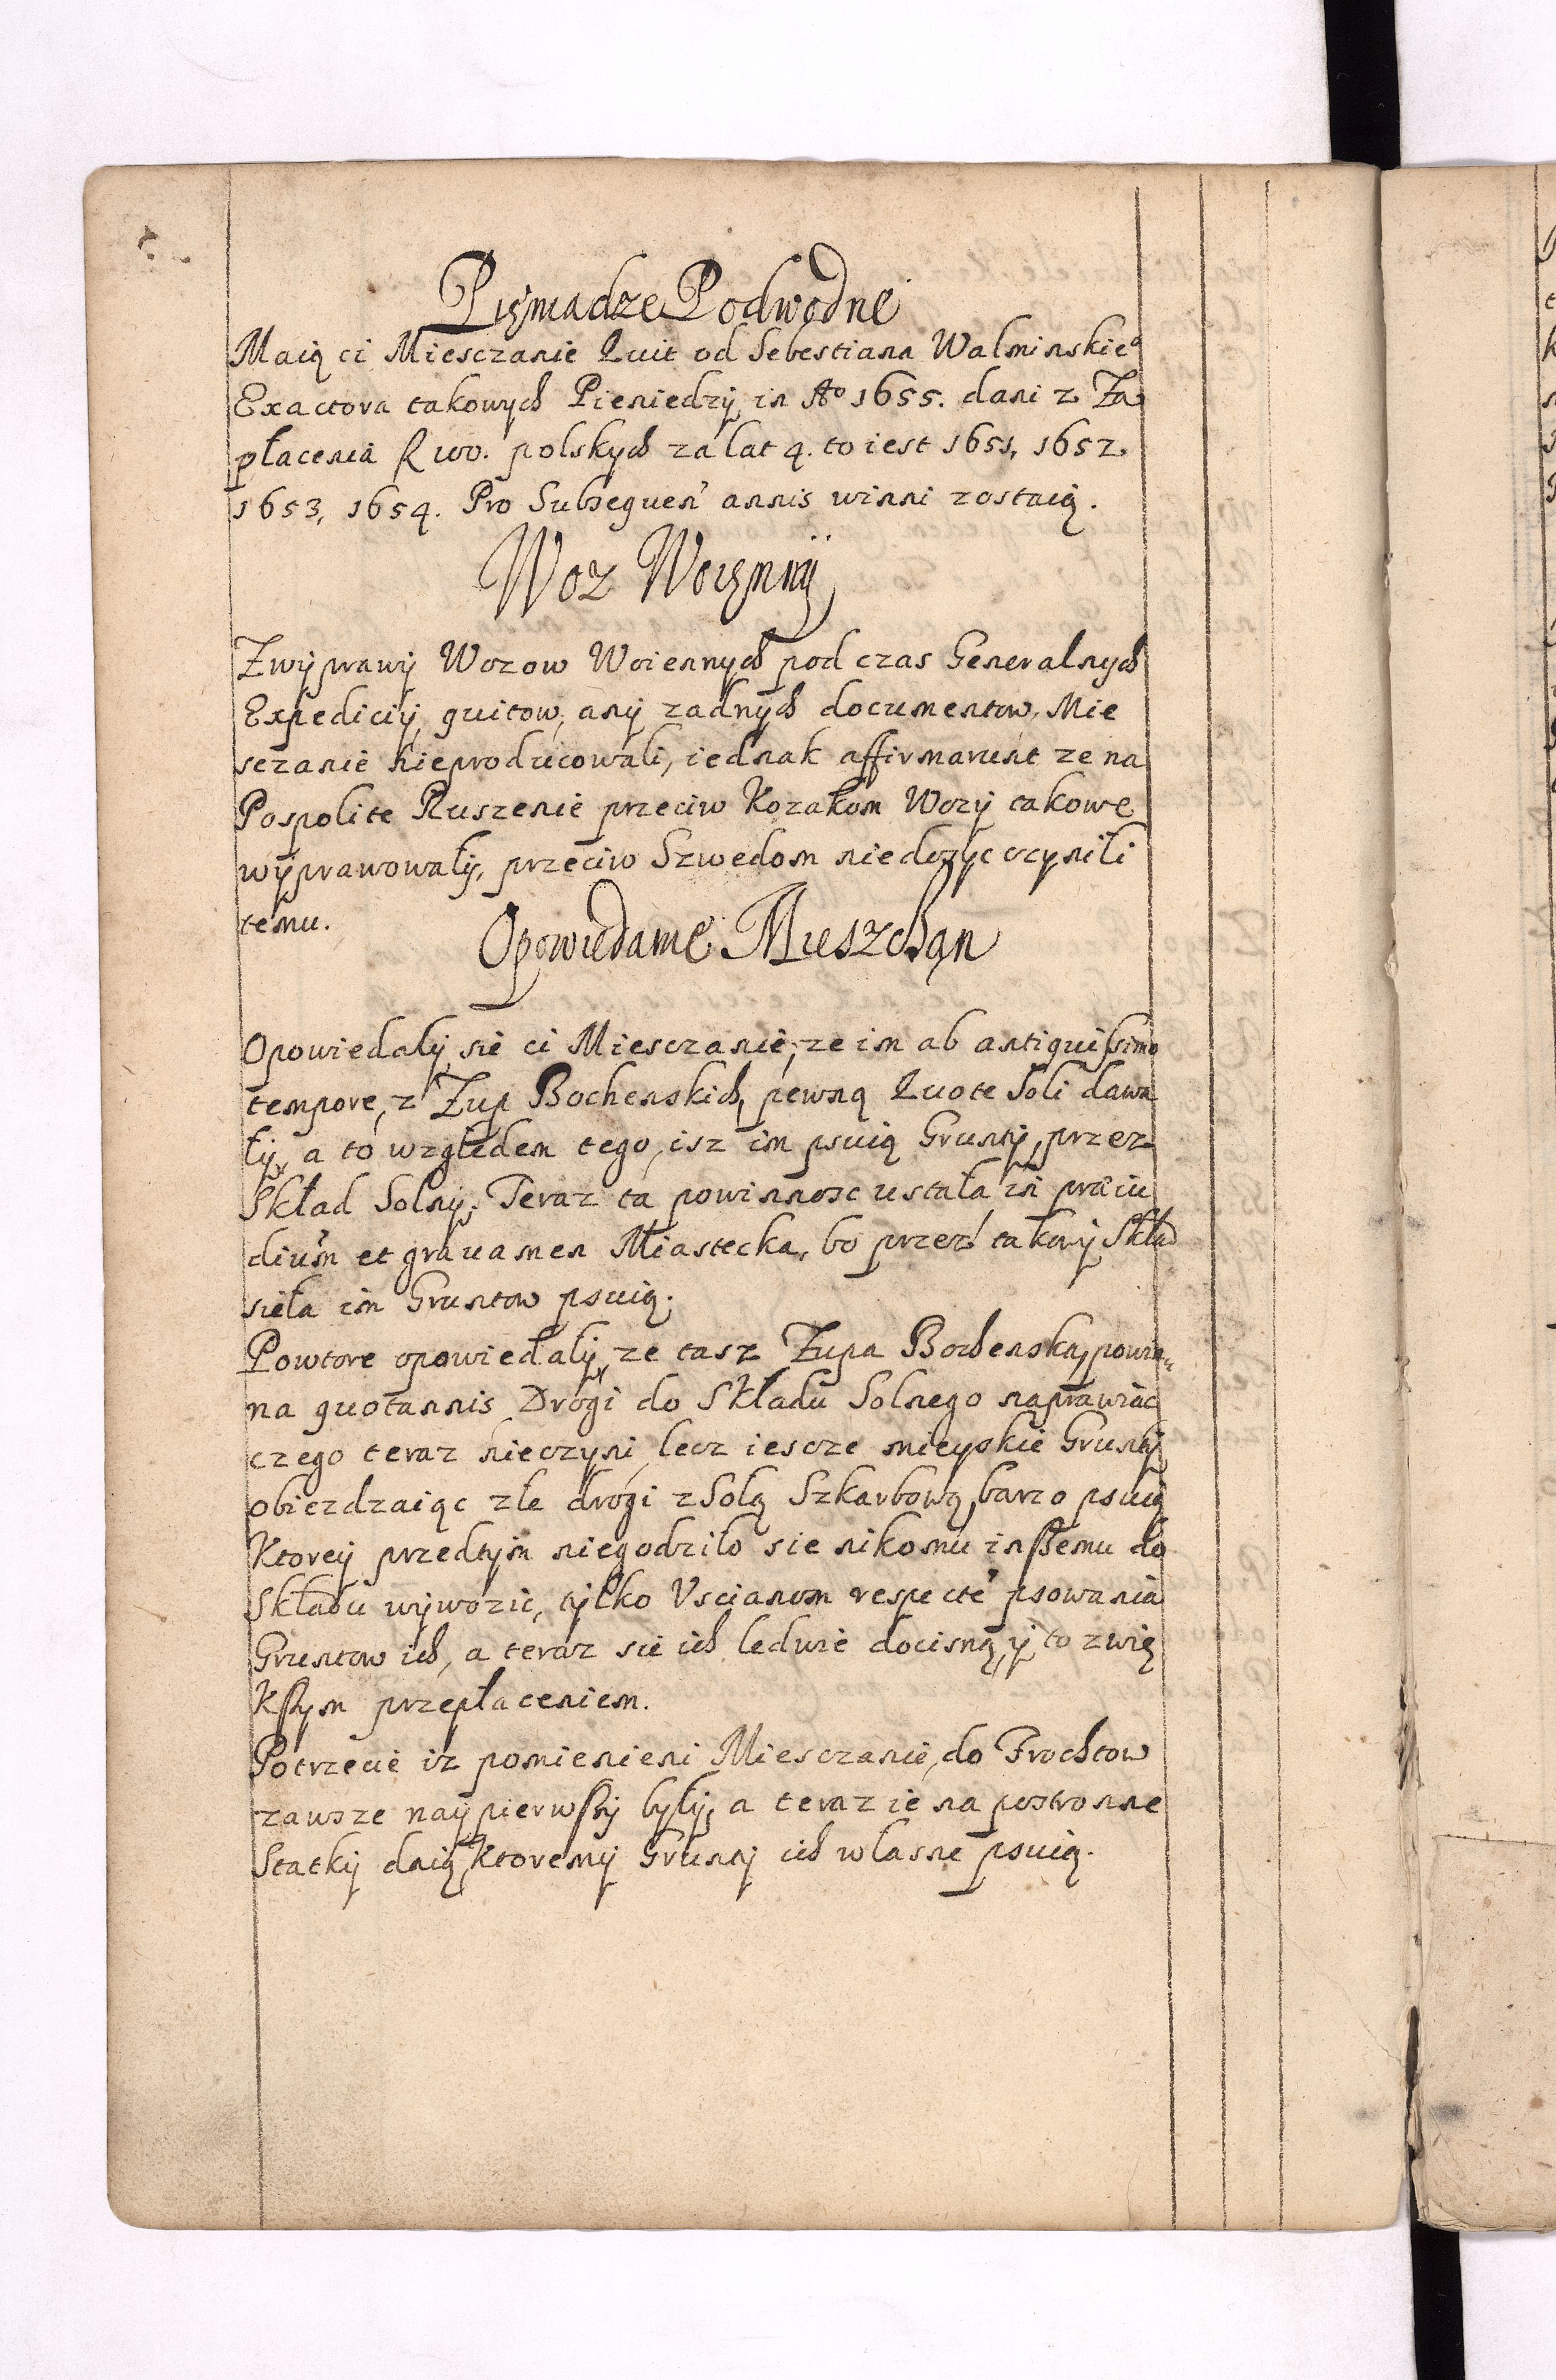 Pieniadze Podwodne
Maią ci Miesczanie Quit od Sebestiana Walminskie͠
Exactora takowych Pieniedzÿ in Ao 1655. dani z Za
płacenia polskych za lat 4. to iest 1651, 1652.
1653, 1654. Pro Subsequen' annis winni zostaią.
Woz Woienny
Zwyprawÿ Wozow Woiennych pod czas Generalnych
Expediciÿ, quitow, anÿ zadnych documentow, Mie
sczanie nieproducowali, iednak affirmarunt ze na
Pospolite Ruszenie przeciw Kozakom Wozÿ takowe
wÿprawowałÿ, przeciw Szwedom niedozyc ucynili
temu.
Opowiedanie Mieszchan
Opowiedalÿ sie ci Miesczanie, ze im ab antiquissimo
tempore, z Zup Bochenskich, pewną Quote Soli dawa
lÿ, a to względem tego, isz im psuią Gruntÿ, przez
Skład Solnÿ, Teraz ta powinnosc ustała in praeiu
dium et grauamen Miastecka, bo przez takowÿ Skład
siełа im Gruntow psuią.
Powtore opowiedalÿ, ze tasz Zupa Bochenska, powin„
na quotannis Drogi do Składu Solnego naprawiac
czego teraz nieczyni, lecz iescze mieyskie Gruntÿ
obiezdzaiąc złe drogi z Solą Szkarbową, barzo psuią
Ktoreÿ przedtÿm niegodziło sie nikomu inszemu do
Składu wÿwozic, tÿlko Uscianom respecte psowania
Gruntow ich, a teraz sie ich ledwie docisną, ÿ to zwię
kszym przepłaceniem.
Potrzecie iz pomienieni Miesczanie, do Frochtow
zawsze naÿpierwszÿ bÿlÿ, a teraz ie na postronne
Statkÿ daią, Ktoremÿ Gruntÿ ich własne psuią.